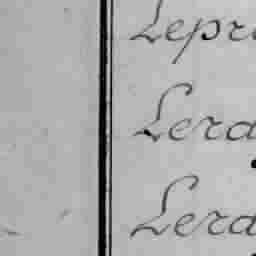 Lepr
Lera
Lera